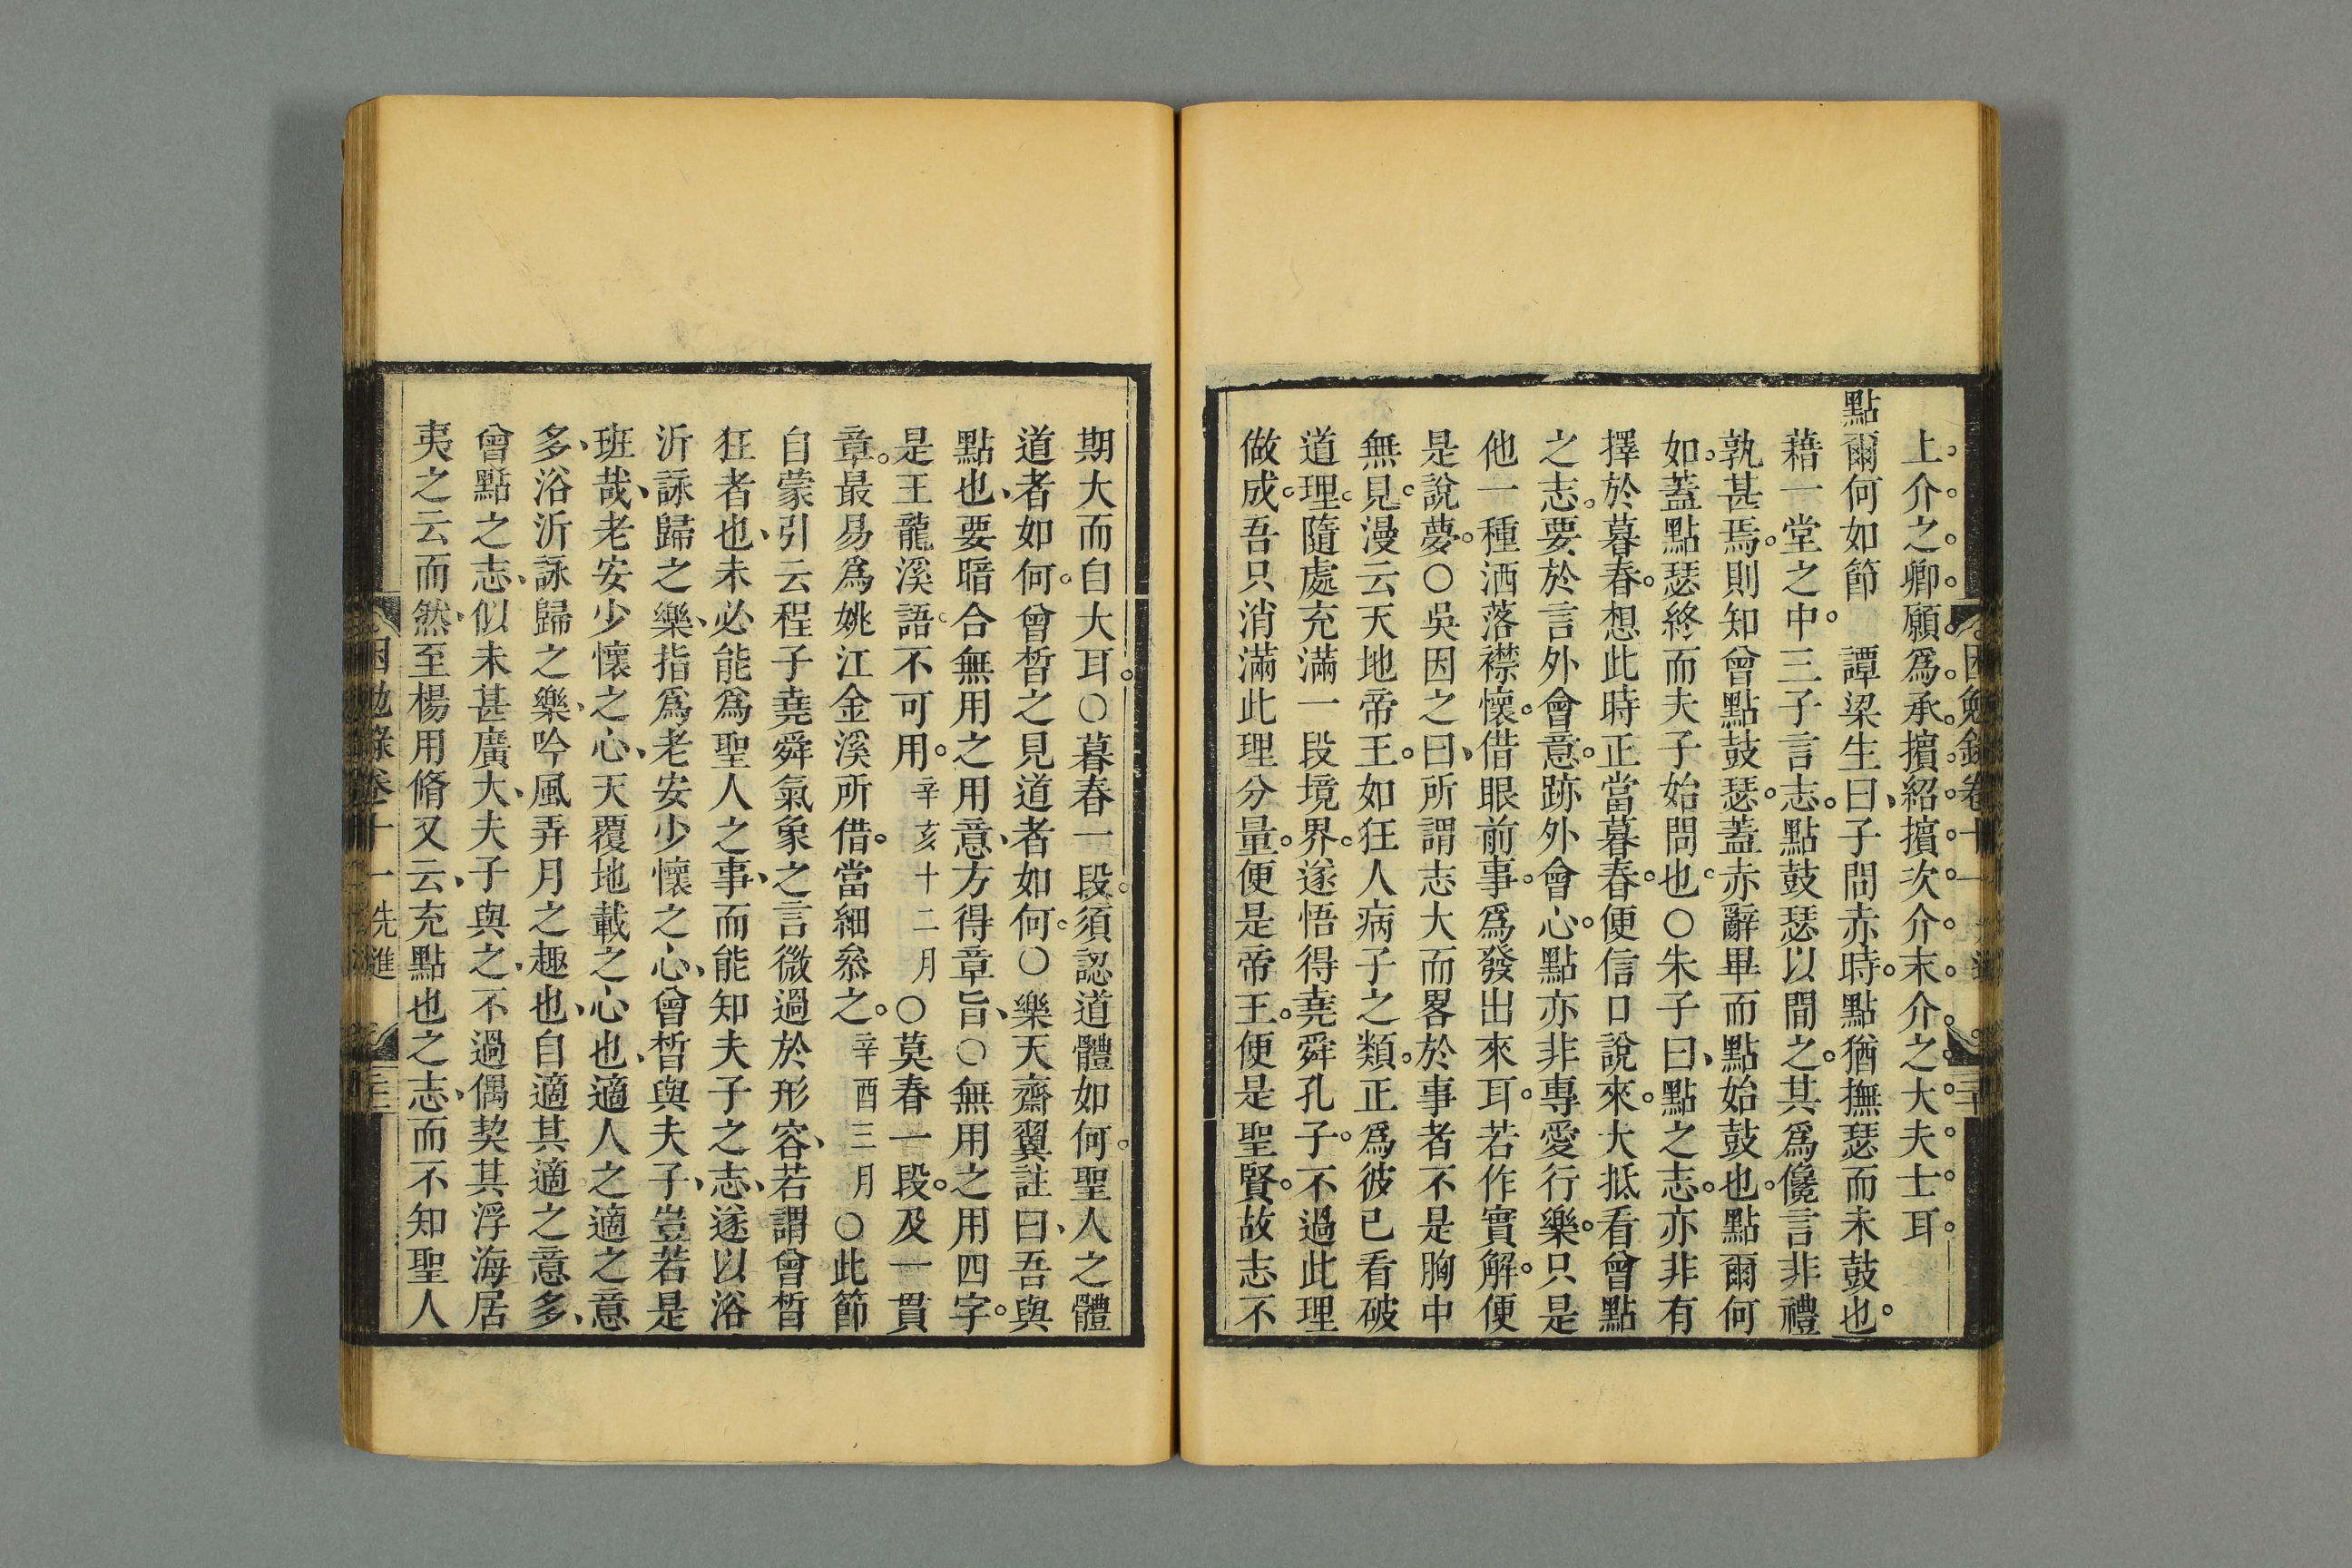 上介之卿願爲承擯紹擯次介末介之大夫士耳
點爾何如節　譚梁生曰子問赤時點猶撫瑟而未鼓也
藉一堂之中三子言志點鼓瑟以間之其爲儳言非禮
孰甚焉則知曾點鼓瑟蓋赤辭畢而點始鼓也點爾何
如蓋點瑟終而夫子始問也○朱子曰點之志亦非有
擇於暮春想此時正當暮春便信口說來大抵看曾點
之志要於言外會意跡外會心點亦非專愛行樂只是
他一種洒落襟懷借眼前事爲發出來耳若作實解便
是說夢○吳因之曰所謂志大而畧於事者不是胸中
無見漫云天地帝王如狂人病子之類正爲彼已看破
道理隨處充滿一段境界遂悟得堯舜孔子不過此理
做成吾只消滿此理分量便是帝王便是聖賢故志不
期大而自大耳○暮春一段須認道體如何聖人之體
道者如何曾晳之見道者如何○樂天齋翼註曰吾與
點也要暗合無用之用意方得章旨○無用之用四字
是王龍溪語不可用辛亥十二月○莫春一段及一貫
章最易爲姚江金溪所借當細叅之辛酉三月○此節
自蒙引云程子堯舜氣象之言微過於形容若謂曾晳
狂者也未必能爲聖人之事而能知夫子之志遂以浴
沂詠歸之樂指爲老安少懷之心曾晳與夫子豈若是
班哉老安少懷之心天覆地載之心也適人之適之意
多浴沂詠歸之樂吟風弄月之趣也自適其適之意多
曾點之志似未甚廣大夫子與之不過偶契其浮海居
夷之云而然至楊用脩又云充點也之志而不知聖人
困勉錄卷十一 先進